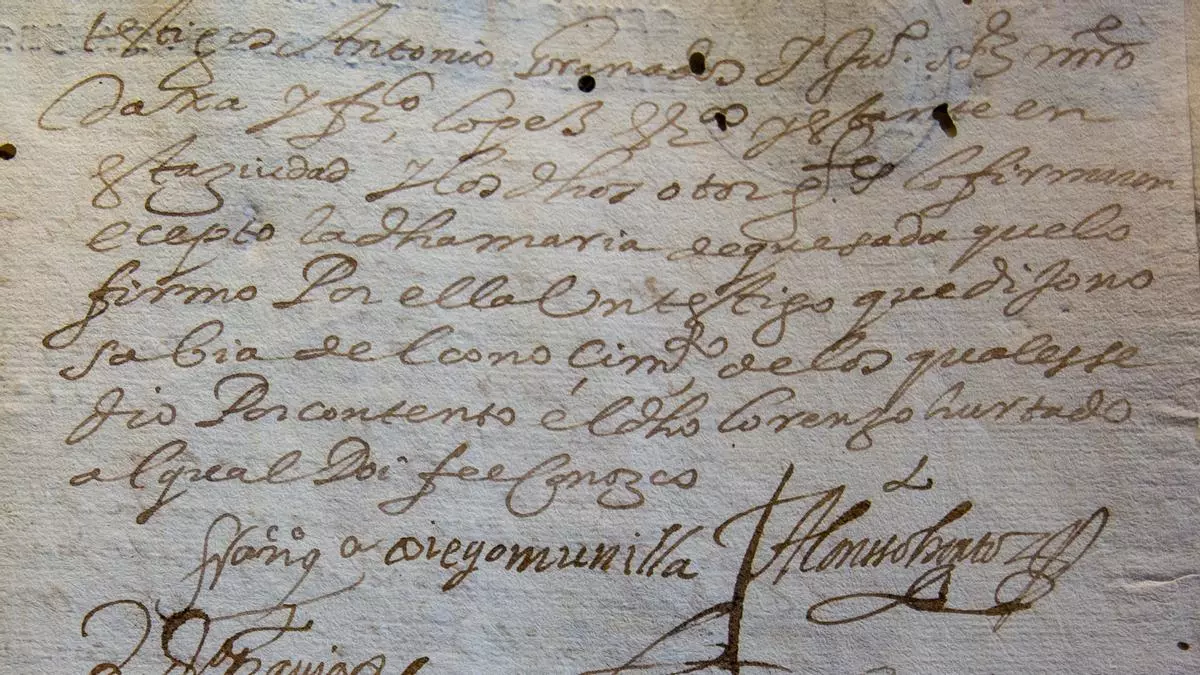 testigos Antonio Granados y Juº. sz mro
y frco lopez y estante en
esta ziudad y los dhos otorges lo firmaron
ecepto la dha maria de quesada que lo
firmo Por ella Un testigo que dijo no
sabia del conocimº de los quales se
dio Por contento el dho lorenzo hurtado
al qual Doi fee Conozco
diego munilla Alonso